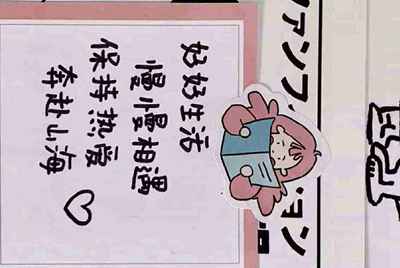 好好生活
慢慢相遇
保持热爱
奔赴山海♡
ョン